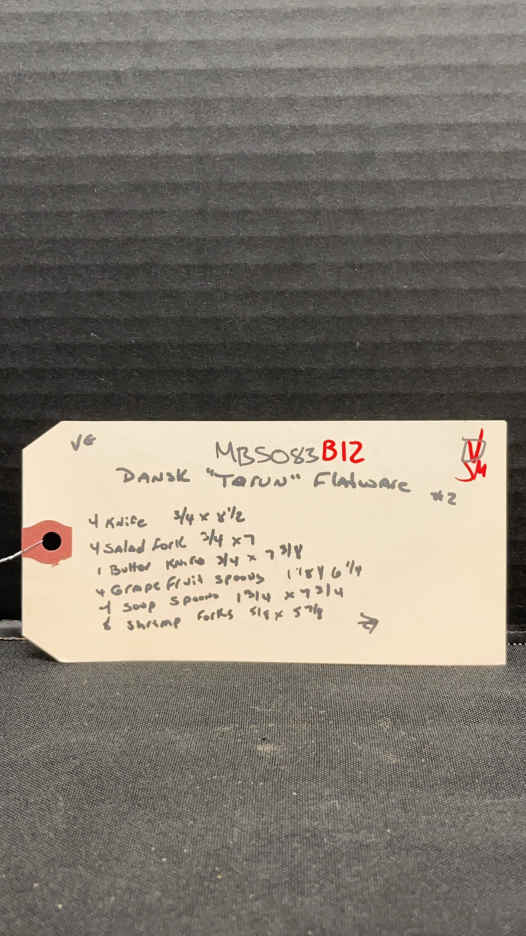 VG
MBS083 B12
DANSK "TORUN" FLATWARE
#2
4 Knife 3/4 x 8 1/2
4 Salad fork 3/4 x 7
1 Butter Knife 3/4 x 7 3/8
4 Grapefruit spoons 1 1/8 6 1/4
4 Soup spoons 1 3/4 x 7 3/4
Shrimp forks 5/8 x 5 7/8